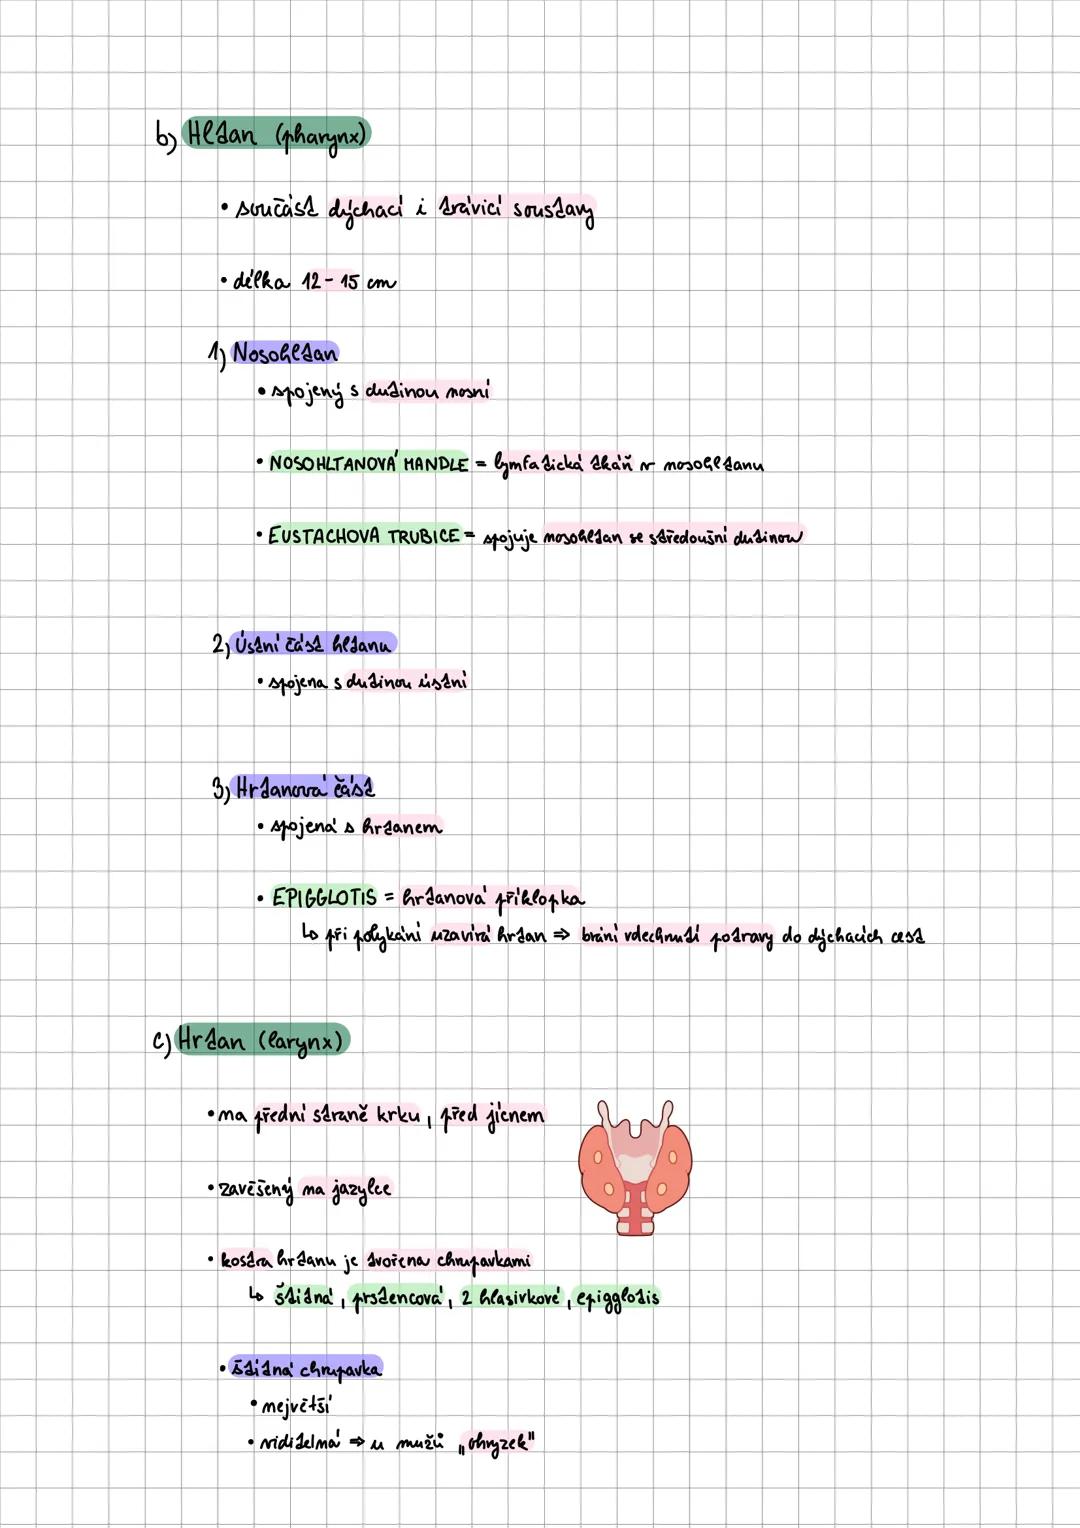 b) Hltan (pharynx)
• součást dýchací i trávicí soustavy
• délka 12 - 15 cm
1) Nosohltan
• spojený s dutinou nosní
• NOSOHLTANOVÁ MANDLE = lymfatická tkáň v nosohltanu
• EUSTACHOVA TRUBICE = spojuje nosohltan se středoušní dutinou
2) Ústní část hltanu
• spojena s dutinou ústní
3) Hrtanová část
• spojená s hrtanem
• EPIGGLOTIS = hrtanová příklopka
↳ při polykání uzavírá hrtan ⇒ brání vdechnutí potravy do dýchacích cest
c) Hrtan (larynx)
• na přední straně krku, před jícnem
• zavěšený na jazylce
• kostra hrtanu je tvořena chrupavkami
↳ štítná, prstencová, 2 hlasivkové, epigglotis
• štítná chrupavka
• největší
• viditelná ⇒ u mužů „ohryzek"